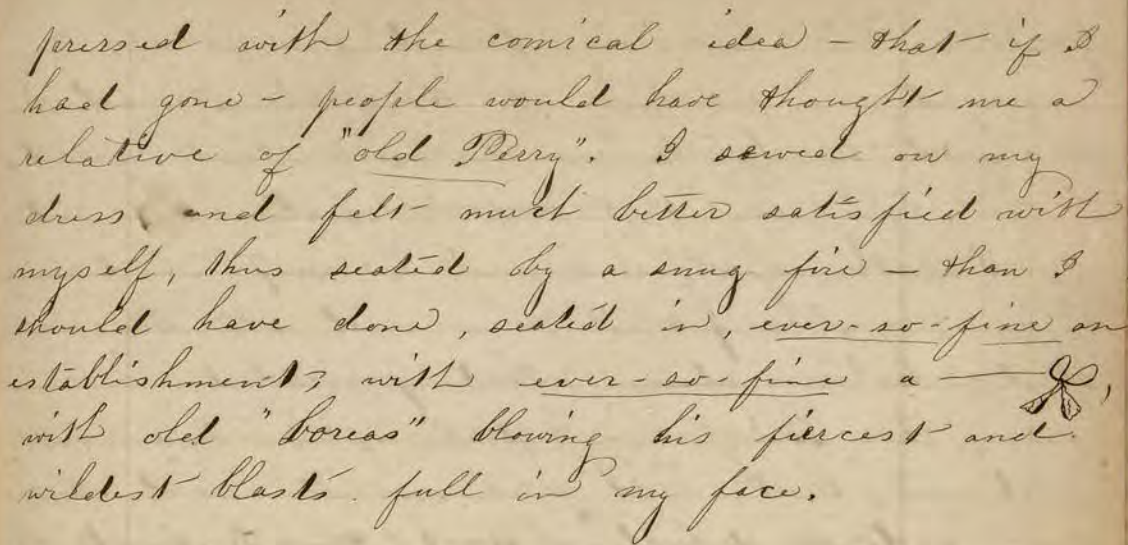 pressed with the comical idea - that if I
had gone - people would have thought me a
relative of "old Perry". I sewed on my
dress, and felt much better satisfied with
myself, thus seated by a snug fire - than I
should have done, seated in, ever-so-fine an
establishment, with ever-so-fine a —— ,
with old "boreas" blowing his fiercest and
wildest blasts full in my face.